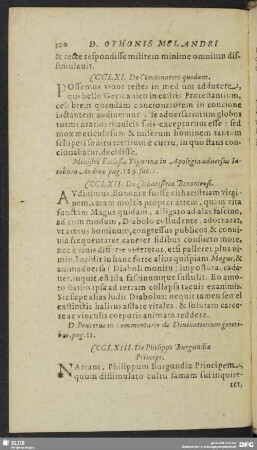 320 D. OTHONIS MELANDRI
& recte respondisse militem minime omnium dissimulavit.
CCCLXI. De Concionatore quodam.
POssemus vivos testes in medium adducere,
qui bello Germanico in castris Protestantium,
celebrem quendam concionatorem in concione
iactantem audiverunt: Se adversariorum globos
tormentarios manicis suis excepturum esse: sed
mox meticulosum & miserum hominem tantum
sclopeti sonitu territum è curru, in quo stans concionabatur, decidisse.
Ministri Ecclesiæ Tigurinæ in Apologia adversus Iacobum Andreæ pag. 129.
CCCLXII. De Citharistria Bononiensi.
AVdivimus Bononiæ fuisse citharistriam virginem,
caram multis propter artem, quam vita
functam Magus quidam, alligato ad alas fascino,
ad eum modum, Diabolo illudente, adornarat,
vt cœtus hominum, congressus publicos, & convivia
frequentaret, caneret fidibus consueto more,
nec à vivis differre videretur, etsi palleret plus nimio.
Incidit in hanc forte alius quispiam Magus, &
animadversa (Diaboli monitu) impostura, cadaver,
inquit, est ista fascinumque sustulit. Eo amoto
statim ipsa ad terram collapsa iacuit exanimis.
D. Peucerus in Commentario de Divinationum generibus, pag. 11.
CCCLXIII. De Philippo Burgundiæ
Principe.
NArrant, Philippum Burgundiæ Principem,
quum dissimulato cultu famam sui inquireret,
SLUB